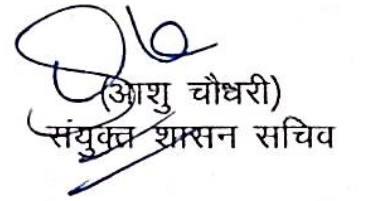 (आशु चौधरी)
संयुक्त शासन सचिव